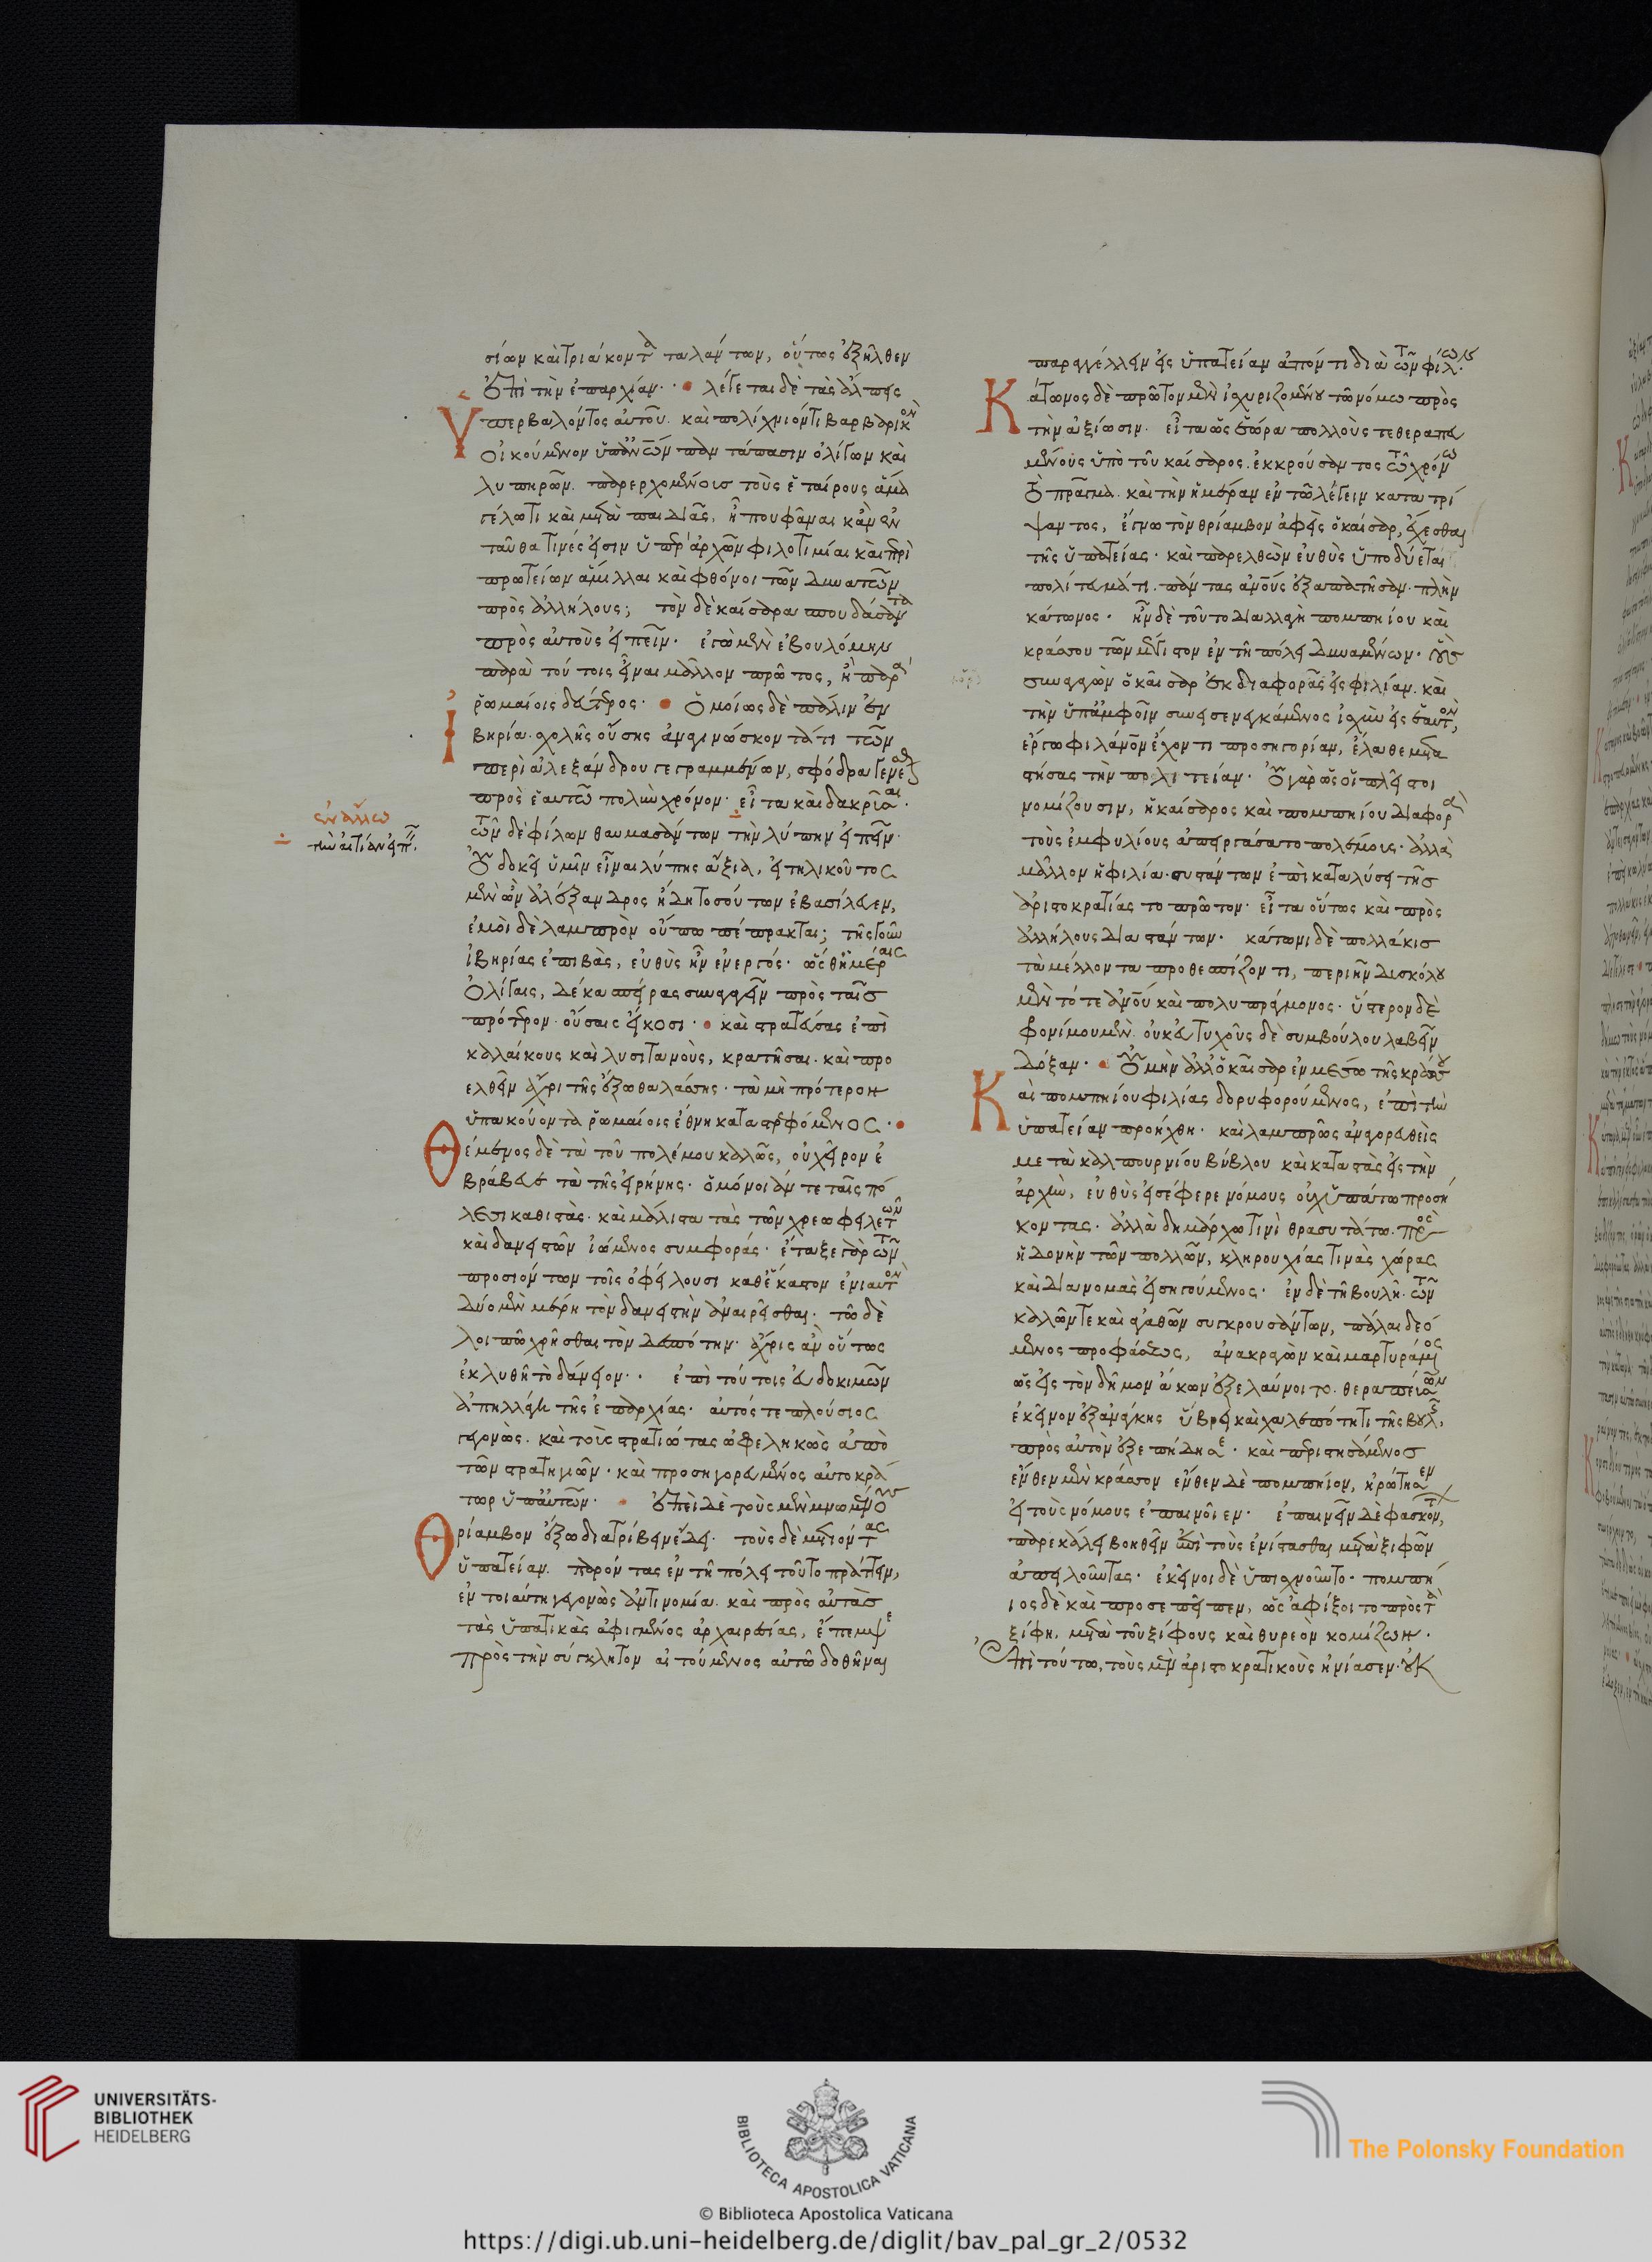 σίων καὶ τριάκοντα ταλάντων, οὕτως ἐξῆλθεν
ἐπὶ τὴν ἐπαρχίαν. λέγεται δὲ τὰς ἄλπεις
ὑπερβαλόντος αὐτοῦ. καὶ πολίχνιόν τι βαρβαρικὸν
οἰκούμενον ὑπὸ ἀνθρώπων παντάπασιν ὀλίγων καὶ
λυπηρῶν. παρερχομένοις τοὺς ἑταίρους ἅμα
γέλωτι καὶ μετὰ παιδιᾶς, ἦ που φάναι κἀν
ταῦθα τινές εἰσιν ὑπὲρ ἀρχῶν φιλοτιμίαι καὶ περὶ
πρωτείων ἅμιλλαι καὶ φθόνοι τῶν δυνατῶν
πρὸς ἀλλήλους; τὸν δὲ καίσαρα σπουδάσαντα
πρὸς αὐτοὺς εἰπεῖν. ἐγὼ μὲν ἐβουλόμην
παρὰ τούτοις εἶναι μᾶλλον πρῶτος, ἢ παρὰ
ῥωμαίοις δεύτερος. ὁμοίως δὲ πάλιν ἐν
Ἰβηρία σχολῆς οὔσης ἀναγινώσκοντά τι τῶν
περὶ ἀλεξάνδρου γεγραμμένων, σφόδρα γενέσθαι
πρὸς ἑαυτῶ πολὺν χρόνον. εἶτα καὶ δακρῦσαι.
ἐν ἄλλω
τὴν αἰτίαν εἰπεῖν.
τῶν δὲ φίλων θαυμασάντων τὴν λύπην εἰπεῖν.
Οὐ δοκεῖ ὑμῖν εἶναι λύπης ἄξια, εἰ τηλικοῦτος
μὲν ὢν ἀλέξανδρος ἤδη τοσούτων ἐβασίλευεν,
ἐμοὶ δὲ λαμπρὸν οὔπω πέπρακται; τῆς γοῦν
ἰβηρίας ἐπιβὰς, εὐθὺς ἦν ἐνεργός. ὥσθ' ἡμέραις
ὀλίγαις, δέκα σπείρας συναγαγεῖν πρὸς ταῖς
πρότερον οὔσαις εἴκοσι. καὶ στρατεύσας ἐπὶ
καλαίκους καὶ λυσιτανοὺς, κρατῆσαι. καὶ προ
ελθεῖν ἄχρι τῆς ἔξω θαλάσσης. τὰ μὴ πρότερον
ὑπακούοντα ῥωμαίοις ἔθνη καταστρεφόμενος.
Θέμενος δὲ τὰ τοῦ πολέμου καλῶς, οὐ χεῖρον ἐ
βράβευε τὰ τῆς εἰρήνης. ὁμόνοιάν τε ταῖς πό
λεσι καθιστὰς. καὶ μάλιστα τὰς τῶν χρεωφειλετῶν
καὶ δανειστῶν ἰώμενος συμφοράς. ἔταξε γὰρ τῶν
προσιόντων τοῖς ὀφείλουσι καθ' ἕκαστον ἐνιαυτὸν
δύο μὲν μέρη τὸν δανειστὴν ἀναιρεῖσθαι. τῶ δὲ
λοιπῶ χρῆσθαι τὸν δεσπότην. ἄχρις ἂν οὕτως
ἐκλυθῆ τὸ δάνειον. ἐπὶ τούτοις εὐδοκιμῶν
ἀπηλλάγη τῆς ἐπαρχίας. αὐτός τε πλούσιος
γεγονὼς. καὶ τοὺς στρατιώτας ὠφεληκὼς ἀπὸ
τῶν στρατηγιῶν. καὶ προσηγορευμένος αὐτοκρά
τωρ ὑπ' αὐτῶν. ἐπεὶ δὲ τοὺς μὲν μνωμένους
Θρίαμβον ἔξω διατρίβειν ἔδει. τοὺς δὲ μετιόντας
ὑπατείαν. παρόντας ἐν τῆ πόλει τοῦτο πράττειν,
ἐν τοιαύτη γεγονὼς ἀντινομία. καὶ πρὸς αὐτὰς
τὰς ὑπατικὰς ἀφιγμένος ἀρχαιρεσίας, ἔπεμψε
πρὸς τὴν σύγκλητον αἰτούμενος αὐτῶ δοθῆναι
παραγγέλλειν εἰς ὑπατείαν ἀπόντι διὰ τῶν φίλων.
Κάτωνος δὲ πρῶτον μὲν ἰσχυριζομένου τῶ νόμω πρὸς
τὴν ἀξίωσιν. εἶτα ὡς ἑώρα πολλοὺς τεθεραπευ
μένους ὑπὸ τοῦ καίσαρος. ἐκκρούσαντος τῶ χρόνω
τὸ πρᾶγμα. καὶ τὴν ἡμέραν ἐν τῶ λέγειν κατατρί
ψαντος, ἔγνω τὸν θρίαμβον ἀφεὶς ὁ καίσαρ, ἔχεσθαι
τῆς ὑπατείας. καὶ παρελθὼν εὐθὺς ὑποδύεται
πολίτευμά τι. πάντας ἀνθρώπους ἐξαπατῆσαν. πλὴν
κάτωνος. ἦν δὲ τοῦτο διαλλαγὴ πομπηίου καὶ
κράσσου τῶν μέγιστον ἐν τῆ πόλει δυναμένων. οὓς
συναγαγὼν ὁ καῖσαρ ἐκ διαφορᾶς εἰς φιλίαν. καὶ
τὴν ὑπ' ἀμφοῖν συνενεγκάμενος ἰσχὺν εἰς ἑαυτὸν,
ἔργω φιλάνθρωπον ἔχοντι προσηγορίαν, ἔλαθε μετα
στήσας τὴν πολιτείαν. Οὐ γὰρ ὡς οἱ πλεῖστοι
νομίζουσιν, ἡ καίσαρος καὶ πομπηίου διαφορὰ
τοὺς ἐμφυλίους ἀπειργάσατο πολέμους. ἀλλὰ
μᾶλλον ἡ φιλία. συστάντων ἐπὶ καταλύσει τῆς
ἀριστοκρατίας τὸ πρῶτον. εἶτα οὕτως καὶ πρὸς
ἀλλήλους διαστάντων. κάτωνι δὲ πολλάκις
τὰ μέλλοντα προθεσπίζοντι, περιῆν δυσκόλου
μὲν τότε ἀνθρώπου καὶ πολυπράγμονος. ὕστερον δὲ
φρονίμου μὲν. οὐκ εὐτυχοῦς δὲ συμβούλου λαβεῖν
δόξαν. Οὐ μὴν ἀλλ' ὁ καῖσαρ ἐν μέσω τῆς κράσσου
Καὶ πομπηίου φιλίας δορυφορούμενος, ἐπὶ τὴν
ὑπατείαν προήχθη. καὶ λαμπρῶς ἀναγορευθεὶς
μετὰ καλπουρνίου βύβλου καὶ καταστὰς εἰς τὴν
ἀρχὴν, εὐθὺς εἰσέφερε νόμους οὐχ ὑπάτω προσή
κοντας. ἀλλὰ δημάρχω τινὶ θρασυτάτω. πρὸς
ἡδονὴν τῶν πολλῶν, κληρουχίας τινὰς χώρας
καὶ διανομὰς εἰσηγούμενος. ἐν δὲ τῆ βουλῆ. τῶν
καλῶν τε καὶ ἀγαθῶν συγκρουσάντων, πάλαι δεό
μενος προφάσεως, ἀνακραγὼν καὶ μαρτυράμενος
ὡς εἰς τὸν δῆμον ἄκων ἐξελαύνοιτο. θεραπείαν
ἐκεῖνον ἐξ ἀνάγκης ὕβρει καὶ χαλεπότητι τῆς βουλῆς,
πρὸς αὐτὸν ἐξεπήδησε. καὶ περιστησάμενος
ἔνθεν μὲν κράσσον ἔνθεν δὲ πομπήιον, ἠρώτησεν
εἰ τοὺς νόμους ἐπαινοῖεν. ἐπαινεῖν δὲ φασκόντων,
παρεκάλει βοηθεῖν ἐπὶ τοὺς ἐνίστασθαι μετὰ ξιφῶν
ἀπειλοῦντας. ἐκεῖνοι δὲ ὑπισχνοῦντο. πομπή
ιος δὲ καὶ προσεπεῖπεν, ὡς ἀφίξοιτο πρὸς τὰ
ξίφη. μετὰ τοῦ ξίφους καὶ θυρεὸν κομίζων.
Ἐπὶ τούτω, τοὺς μὲν ἀριστοκρατικοὺς ἠνίασεν. οὐκ
UNIVERSITÄTS-
BIBLIOTHEK
HEIDELBERG
BIBLIOTECA APOSTOLICA VATICANA
The Polonsky Foundation
© Biblioteca Apostolica Vaticana
https://digi.ub.uni-heidelberg.de/diglit/bav_pal_gr_2/0532